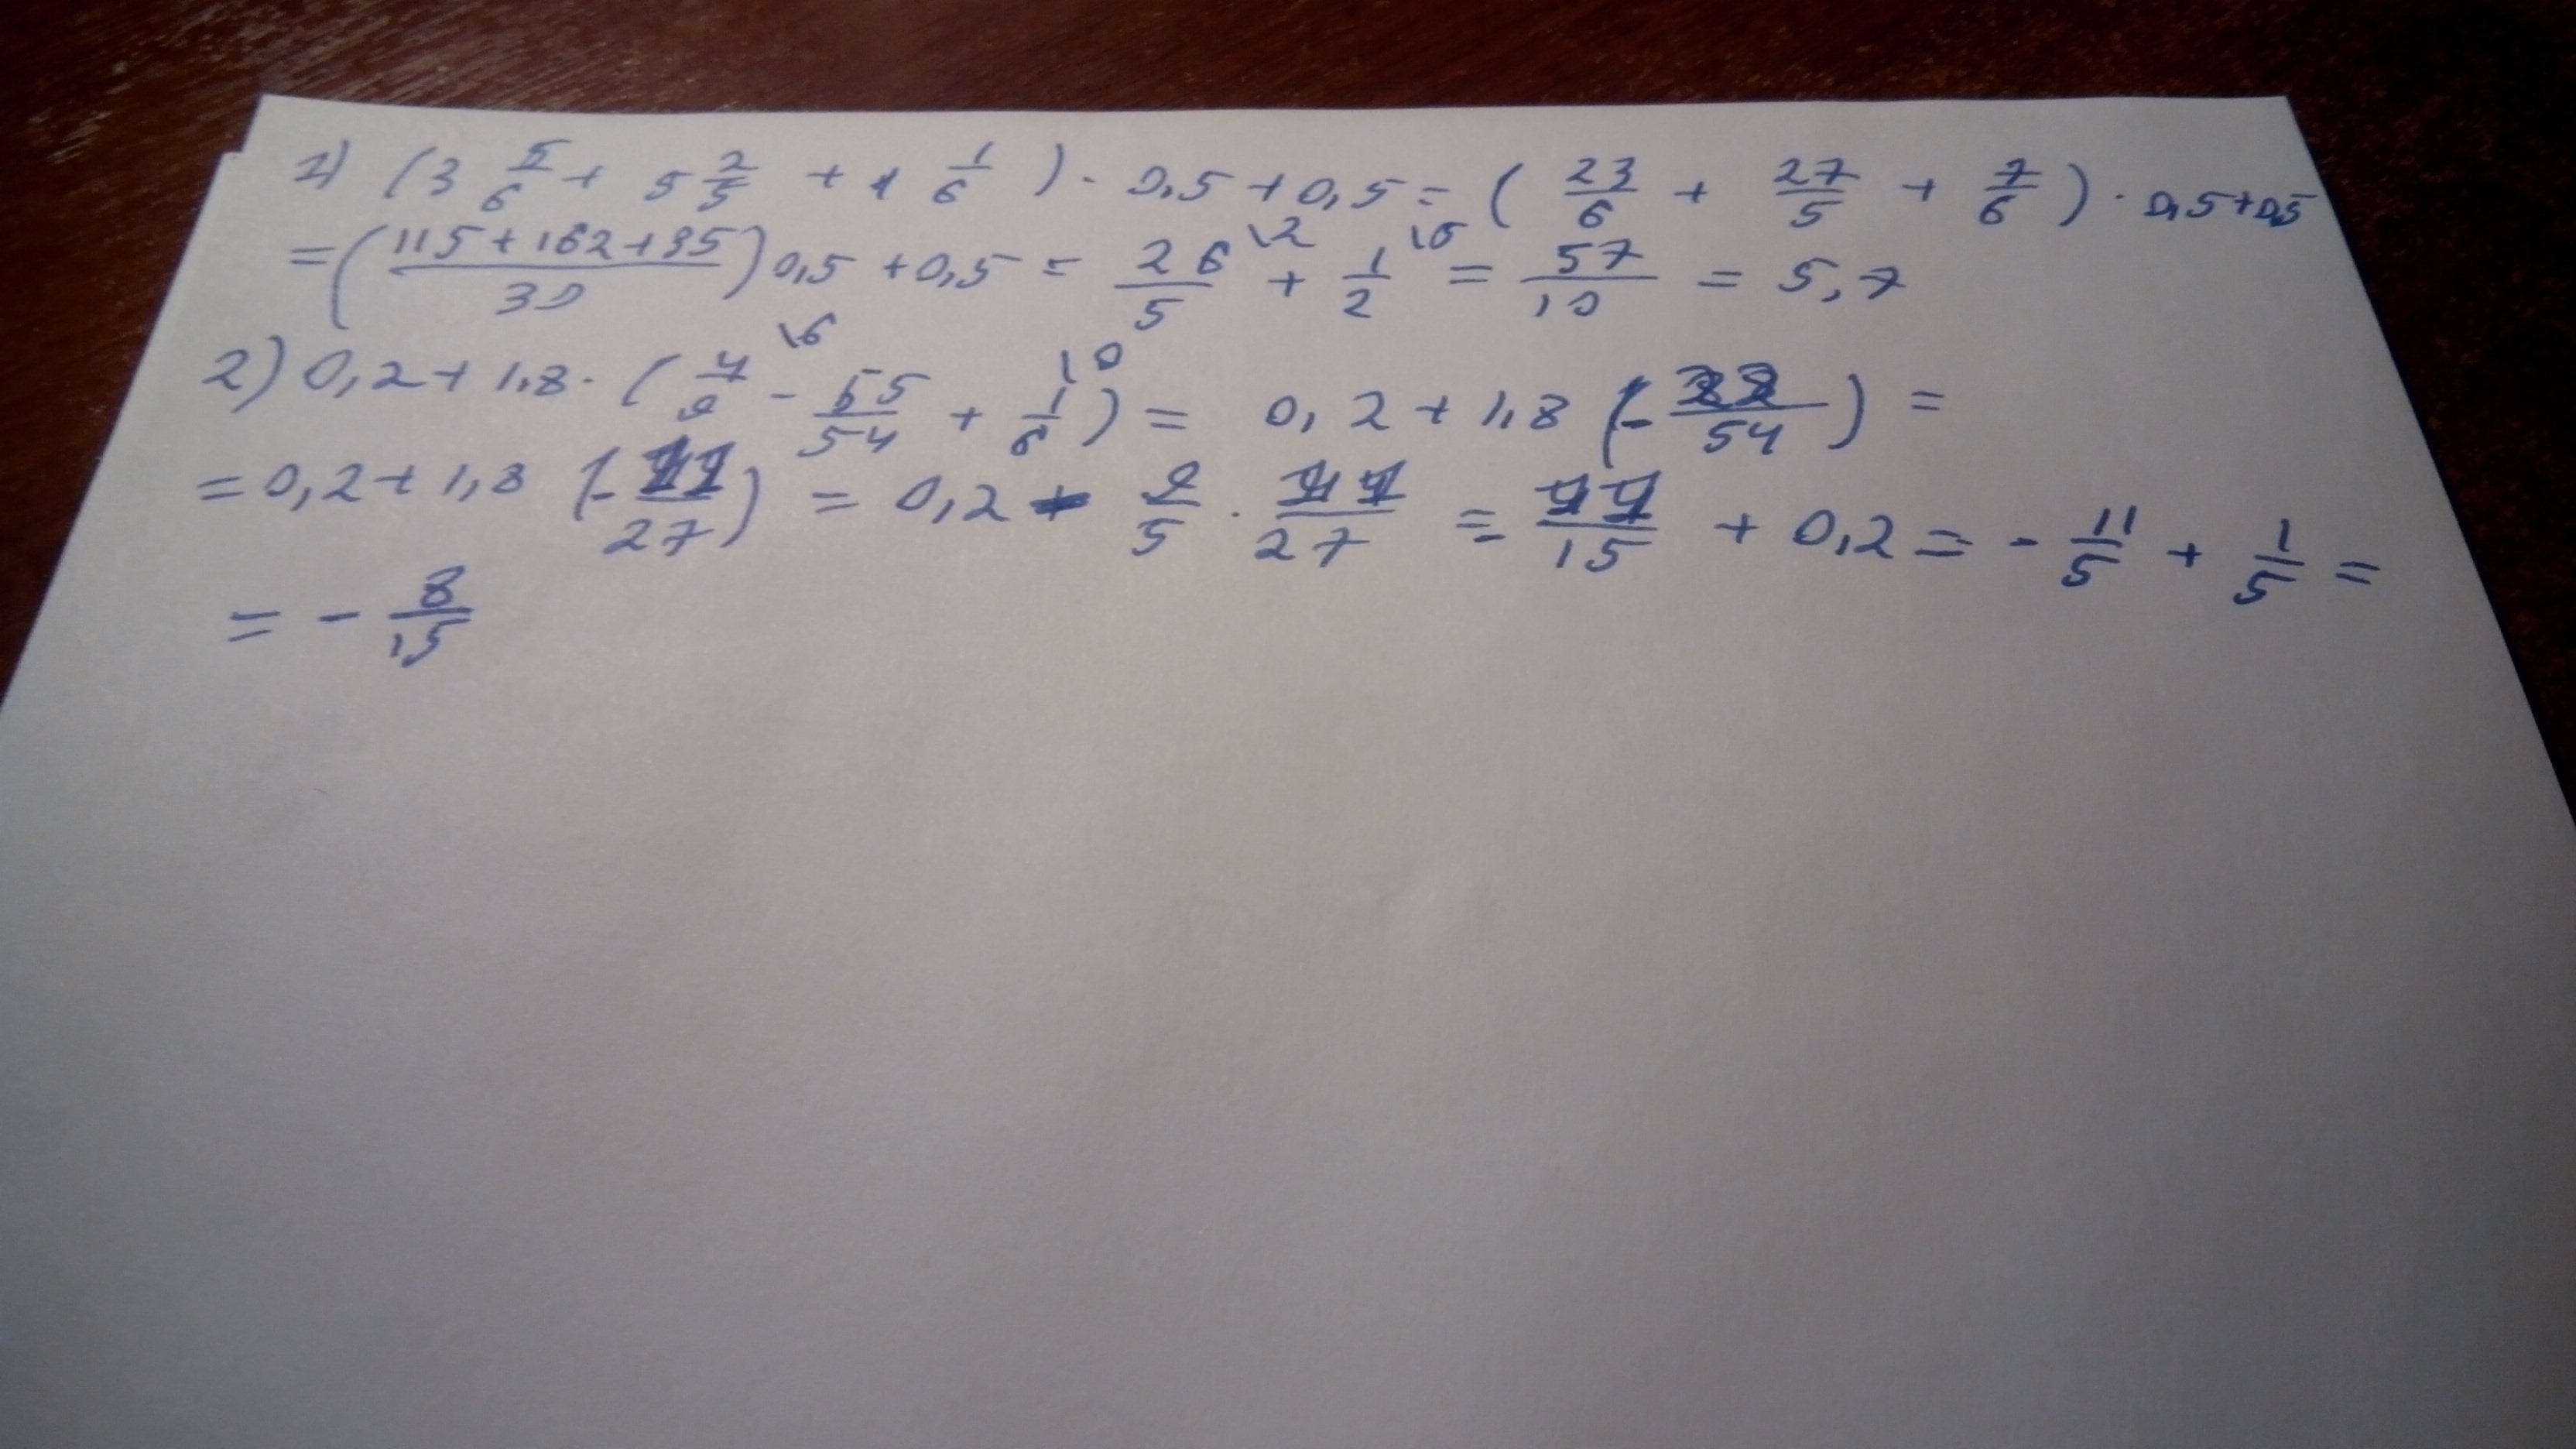 1) (3 5/6 + 5 2/5 + 1 1/6) · 0,5 + 0,5 = (23/6 + 27/5 + 7/6) · 0,5 + 0,5
= ((115 + 162 + 35)/30) 0,5 + 0,5 = 26/5 \2 + 1/2 \5 = 57/10 = 5,7
2) 0,2 + 1,8 · (4/9 \6 - 55/54 + 1/6 \9) = 0,2 + 1,8 (- 22/54) =
= 0,2 + 1,8 (- 11/27) = 0,2 - 9/5 · 11/27 = - 11/15 + 0,2 = - 11/5 + 1/5 =
= - 8/15